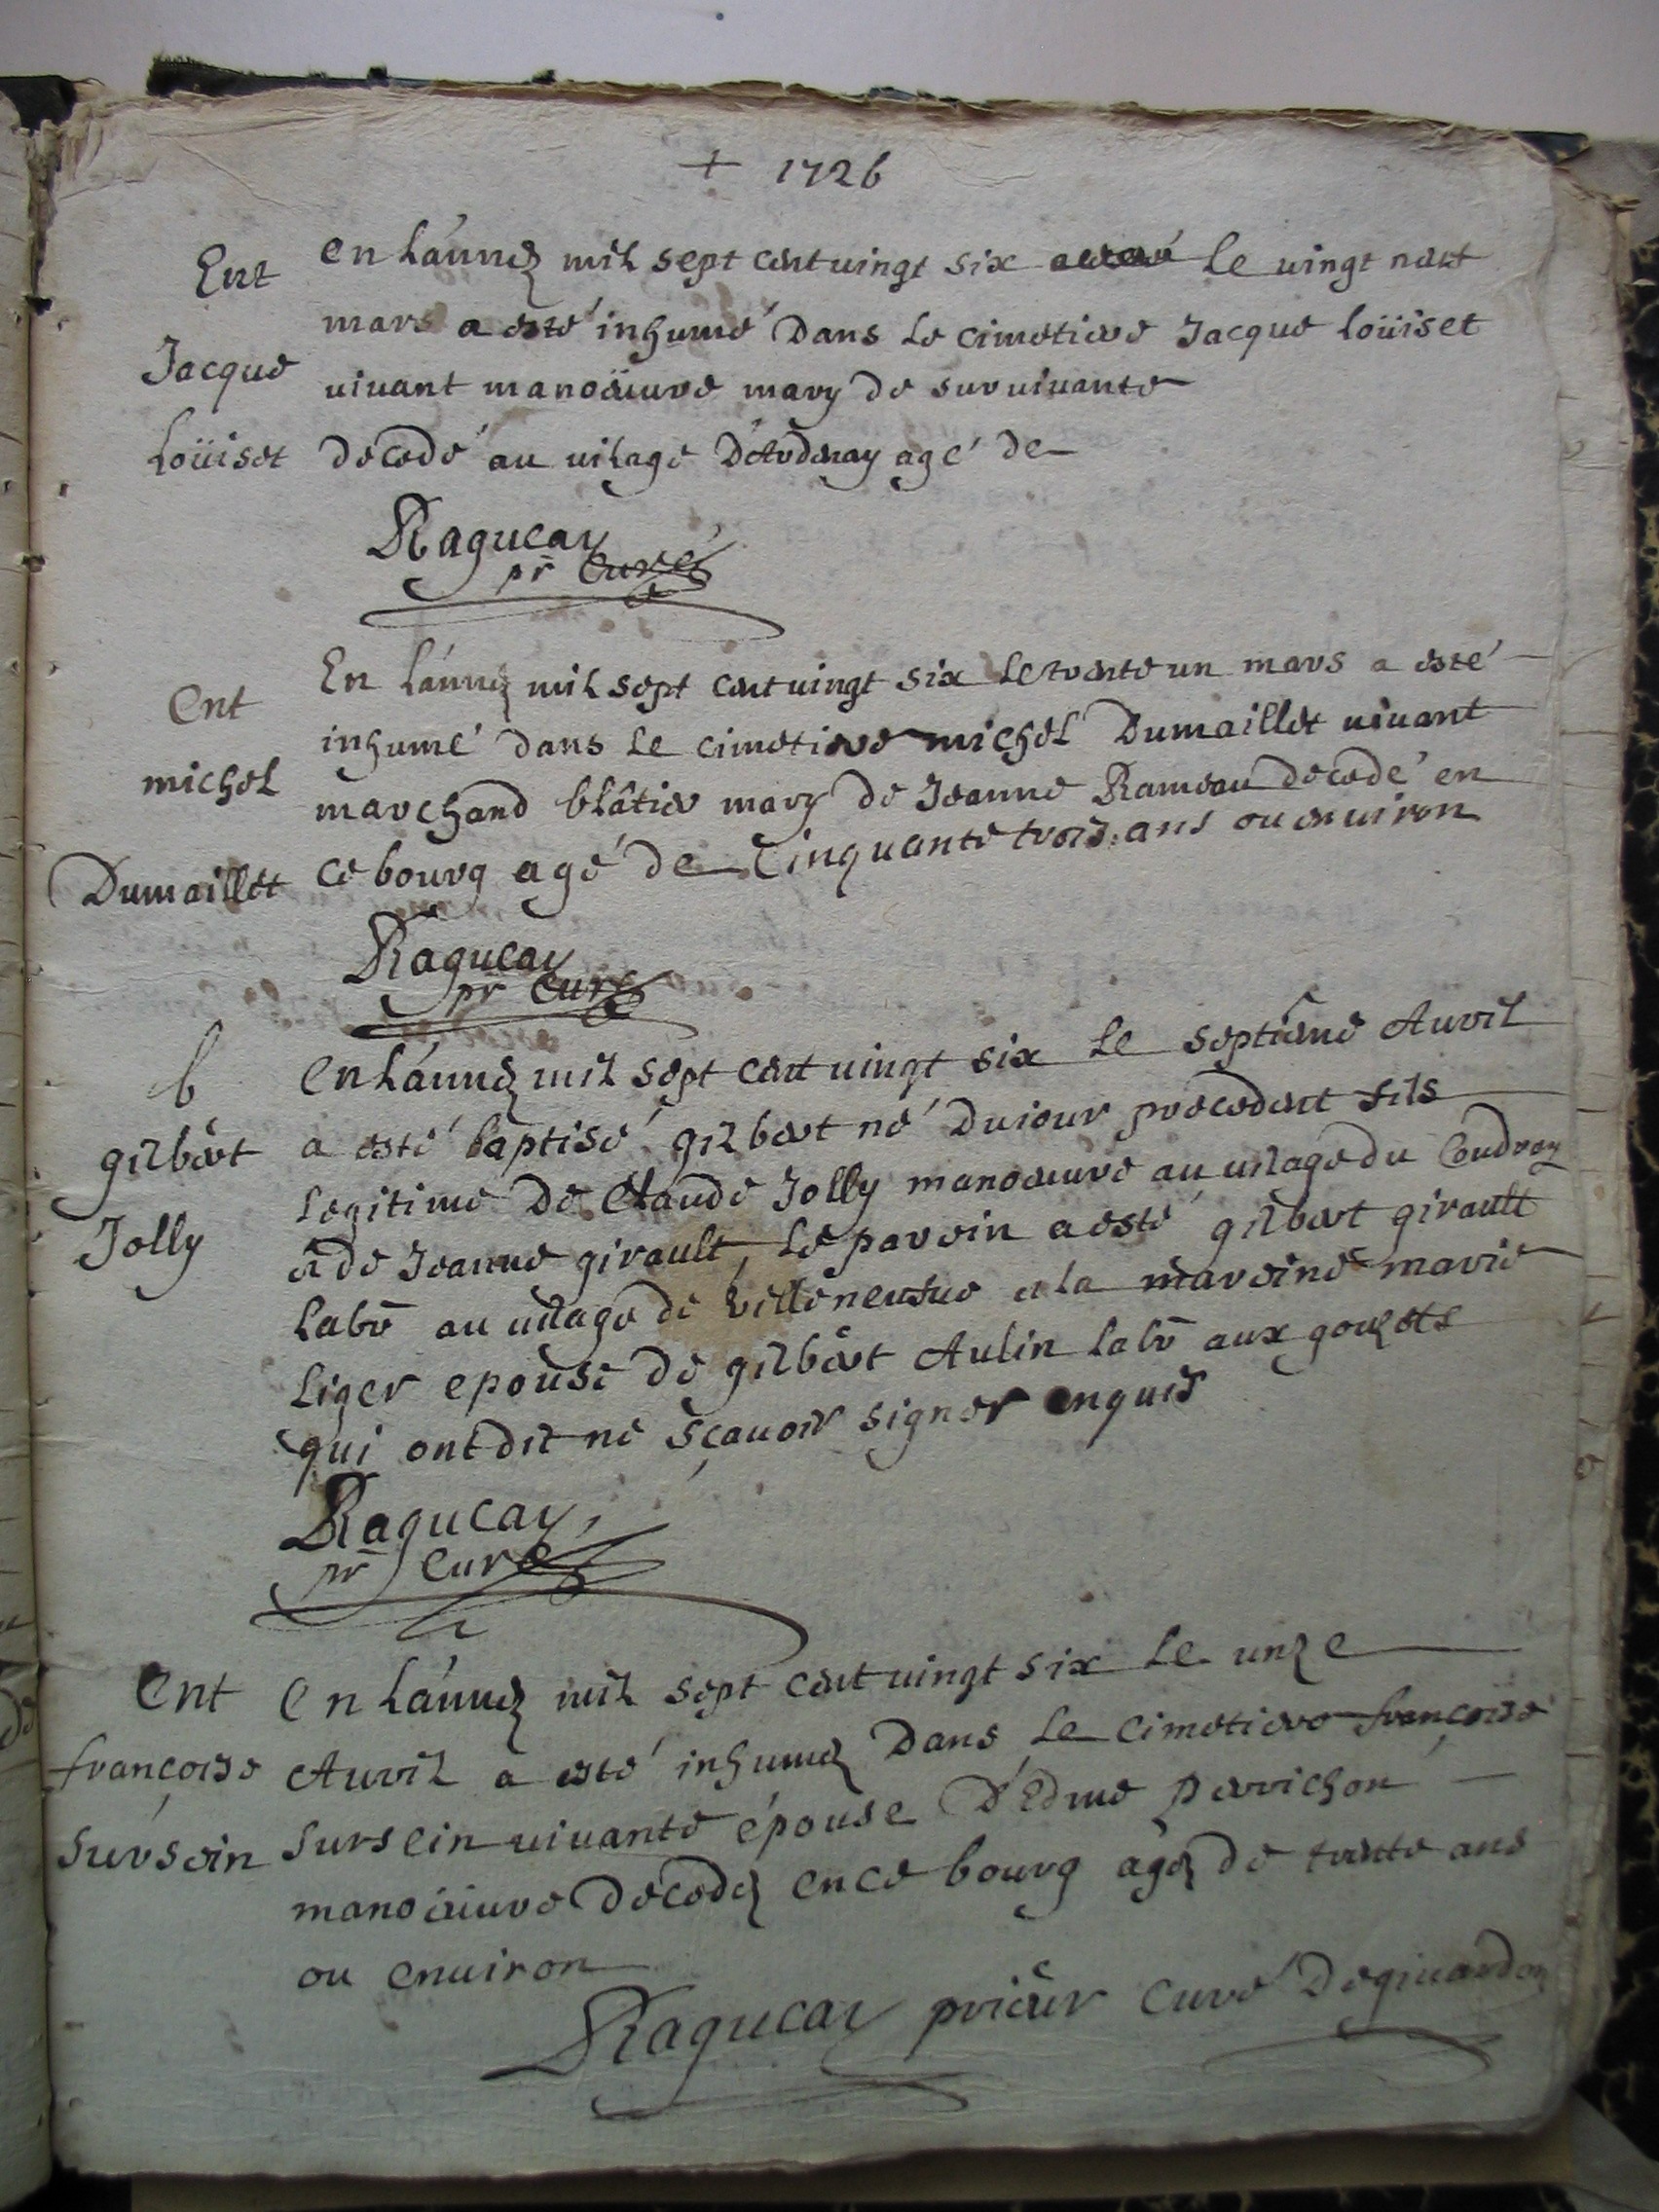 + 1726
Ent
Jacque
Loüiset
en L'année mil sept cent vingt six le vingt neuf
mars a esté inhumé Dans Le cimetiere Jacque Loüiset
vivant manoeuvre mary de survivante
decedé au vilage D'Ardenay agé de
Ragueau
pr Curé
Ent
michel
Dumaillet
En L'année mil sept cent vingt six Le trente un mars a esté
inhumé dans Le cimetiere michel Dumaillet vivant
marchand blâtier mary de Jeanne Rameau decedé en
ce bourg agé de Cinquante trois ans ou environ
Ragueau
pr Curé
b
gilbert
Jolly
en L'année mil sept cent vingt six Le septiéme Avril
a esté baptisé gilbert né Du iour precedent fils
Legitime De Claude Jolly manoeuvre au vilage du Coudray
et de Jeanne girault, Le parein a esté gilbert girault
Labr au vilage de villeneufve et la mareine marie
Liger epouse de gilbert Aulin Labr aux gouzots
qui ont dit ne sçavoir signer enquis
Ragueau
pr Curé
Ent
françoise
Sursein
en L'année mil sept cent vingt six Le unze
Avril a esté inhumée Dans Le cimetiere françoise
Sursein vivante épouse D'Edme perrichon
manoeuvre Decedée en ce bourg agée de trente ans
ou environ
Ragueau prieur Curé De givardon